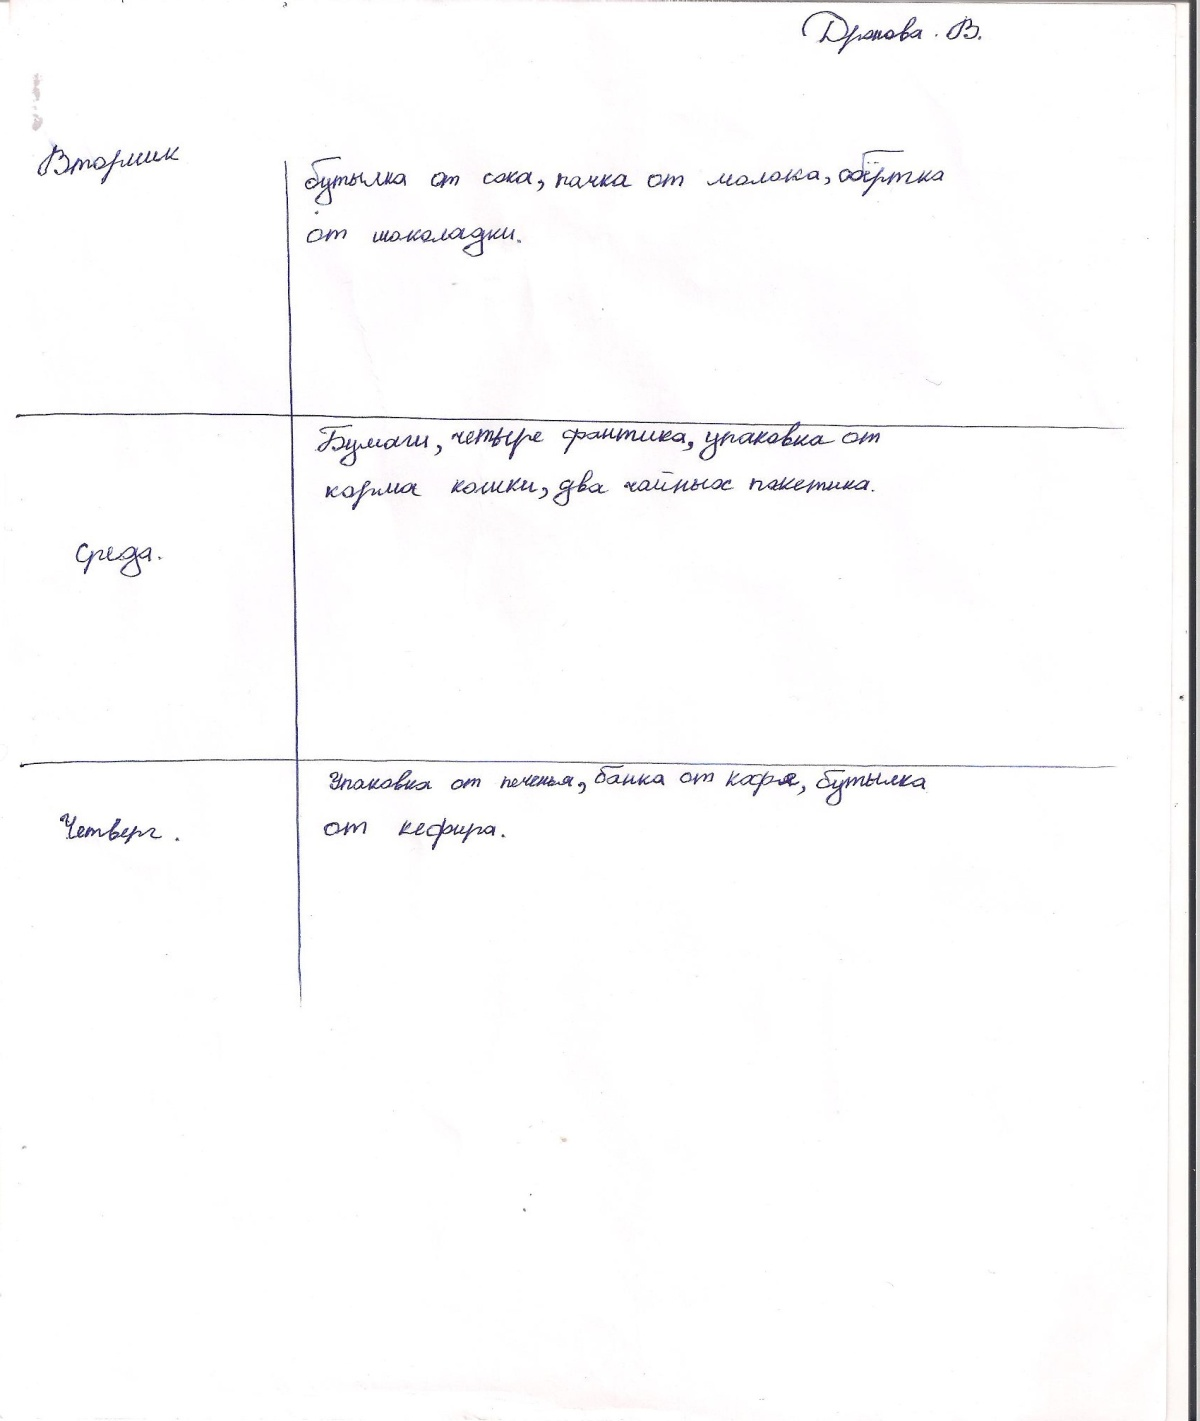 Дронова. В.
Вторник
бутылка от сока, пачка от молока, обёртка
от шоколадки.
Бумаги, четыре фантика, упаковка от
корма кошки, два чайных пакетика.
Среда.
Упаковка от печенья, банка от кофе, бутылка
Четверг.
от кефира.